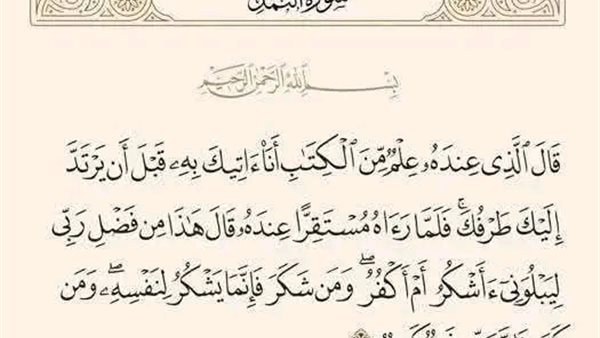 سورة النمل
بِسْمِ ٱللَّهِ ٱلرَّحْمَٰنِ ٱلرَّحِيمِ
قَالَ ٱلَّذِى عِندَهُۥ عِلْمٌ مِّنَ ٱلْكِتَٰبِ أَنَا۠ ءَاتِيكَ بِهِۦ قَبْلَ أَن يَرْتَدَّ
إِلَيْكَ طَرْفُكَ ۚ فَلَمَّا رَءَاهُ مُسْتَقِرًّا عِندَهُۥ قَالَ هَٰذَا مِن فَضْلِ رَبِّى
لِيَبْلُوَنِىٓ ءَأَشْكُرُ أَمْ أَكْفُرُ ۖ وَمَن شَكَرَ فَإِنَّمَا يَشْكُرُ لِنَفْسِهِۦ ۖ وَمَن